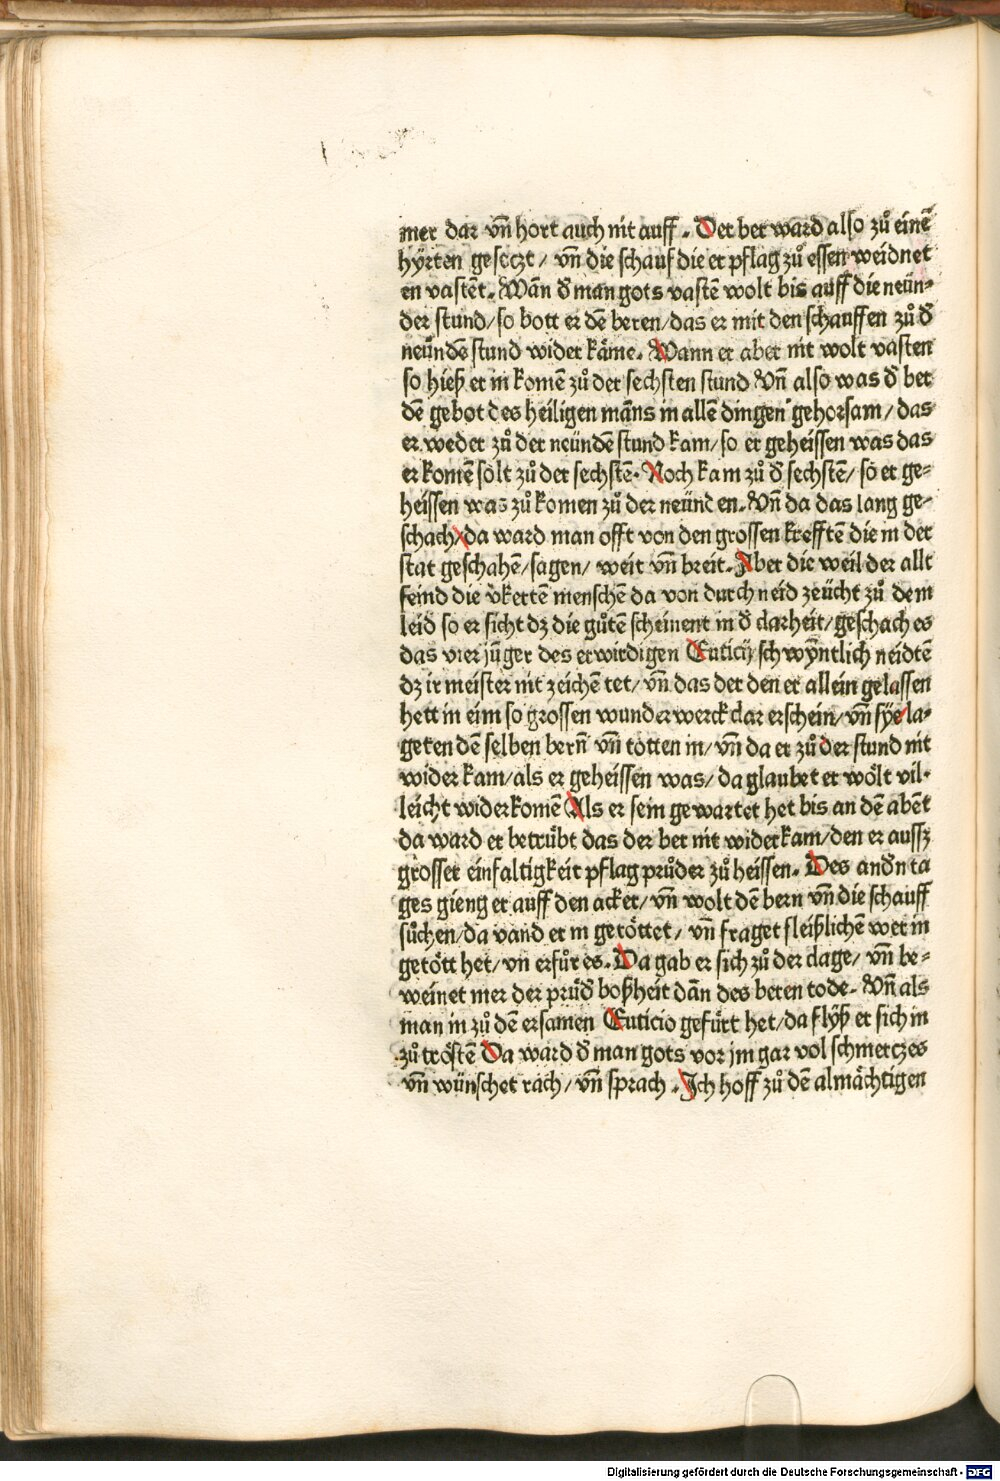 mer dar vn̄ hort auch nit auff . Der ber ward also zů einē
hyrten geseczt / vn̄ die schauf die er pflag zů essen weidnet
er vastēt. Wān d̕ man gots vastē wolt bis auff die neün⸗
der stund/so bott er dē beren/das er mit den schauffen zů d̕
neündē stund wider käme. Wann er aber nit wolt vasten
so hieß er in komē zů der sechsten stund Vn̄ also was d̕ ber
dē gebot des heiligen māns in allē dingen gehorsam/ das
er weder zů der neündē stund kam/so er geheissen was das
er komē sölt zů der sechstē. Noch kam zů d̕ sechstē/ so er ge⸗
heissen was zů komen zů der neünden. Vn̄ da das lang ge⸗
schach/da ward man offt von den grossen krefftē die in der
stat geschahē/sagen/ weit vn̄ breit. Aber die weil der allt
feind die v̕kertē menschē da von durch neid zeücht zů dem
leid so er sicht dz die gůtē scheinent in d̕ clarheit/geschach es
das vier jūger des erwirdigen Euticij schwÿntlich neidtē
dz ir meister nit zeichē tet/ vn̄ das der den er allein gelassen
hett in eim so grossen wunderwerck clar erschein/vn̄ sÿe la⸗
geten dē selben bern̄ vn̄ totten in/vn̄ da er zů der stund nit
wider kam/als er geheissen was/ da glaubet er wölt vil⸗
leicht widerkomē Als er sein gewartet het bis an dē abēt
da ward er betrübt das der ber nit widerkam/den er aussz
grosser einfaltigkeit pflag průder zů heissen. Des andn̄ ta
ges gieng er auff den acker/ vn̄ wolt dē bern vn̄ die schauff
sůchen/da vand er in getöttet/ vn̄ fraget fleißlichē wer in
getött het/vn erfůr es. Da gab er sich zů der clage/ vn̄ be⸗
weinet mer der průd̕ boßheit dān des beren tode. Vn̄ als
man in zů dē ersamen Euticio gefürt het/da flyß er sich in
zů tröstē Da ward d̕ man gots vor jm gar vol schmerczes
vn̄ wünschet rach/ vn̄ sprach . Ich hoff zů dē almächtigen
Digitalisierung gefördert durch die Deutsche Forschungsgemeinschaft - DFG